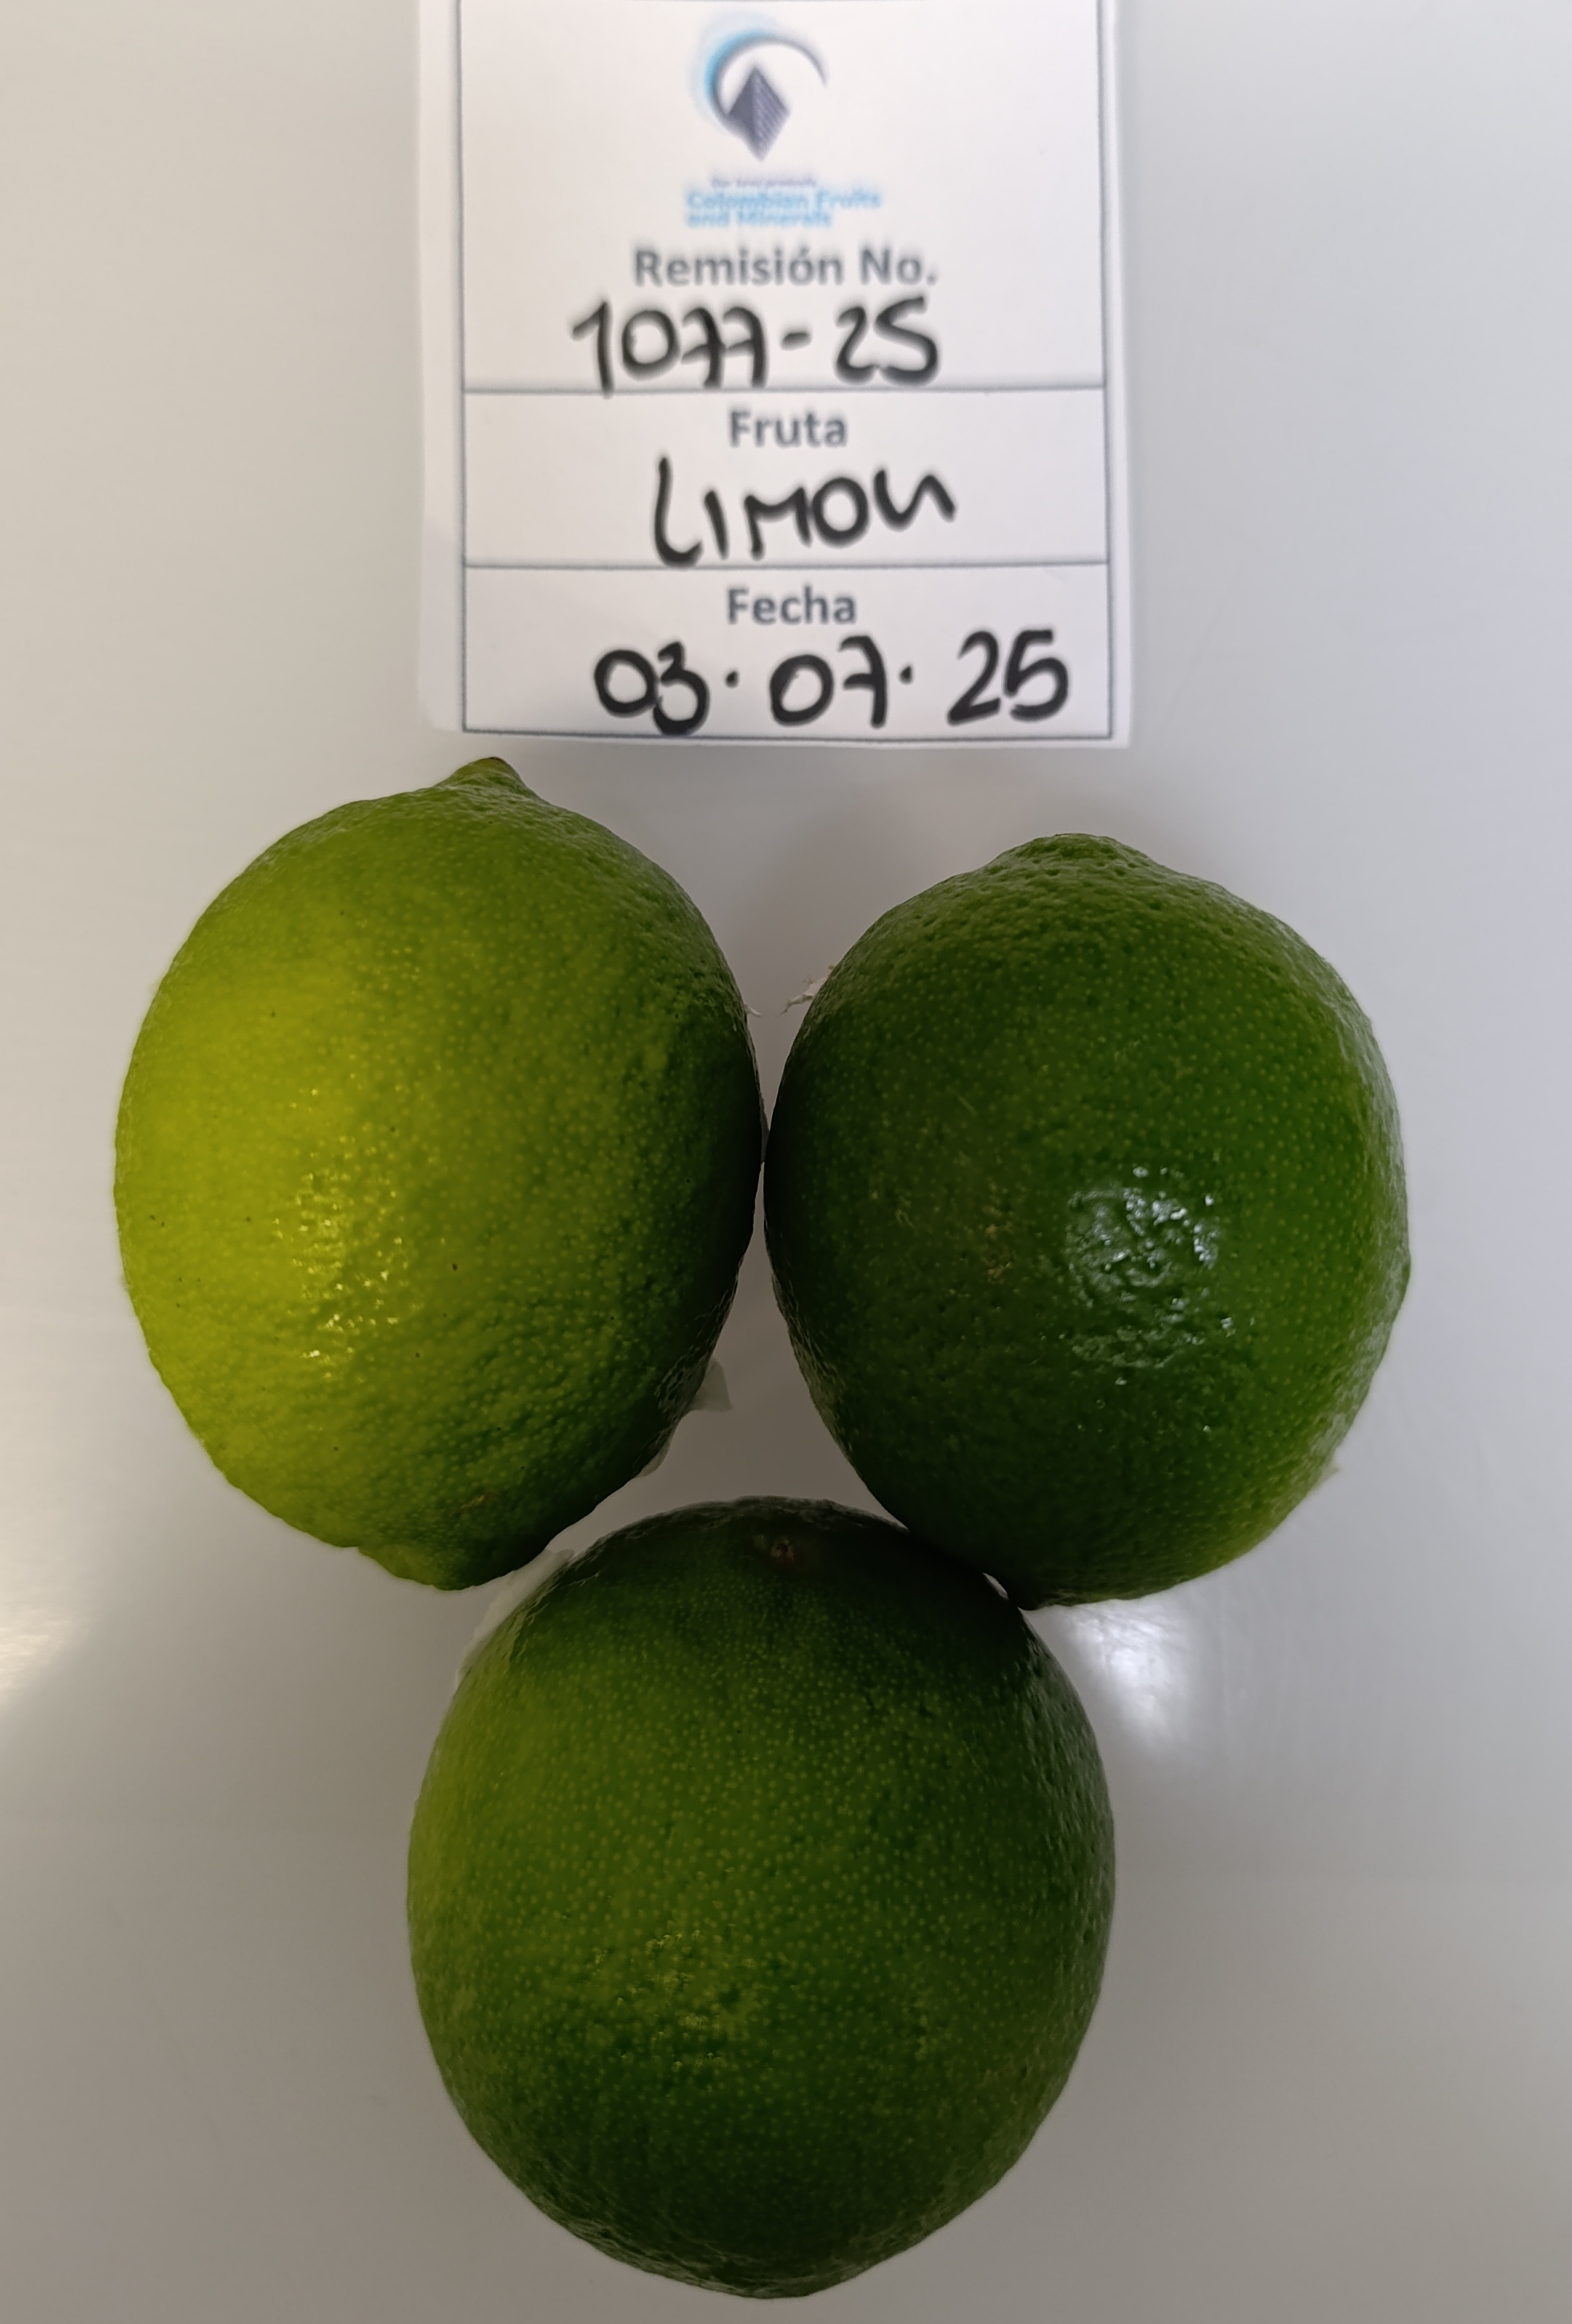 Colombian Fruits
and Minerals
Remisión No.
1077-25
Fruta
LIMON
Fecha
03.07.25